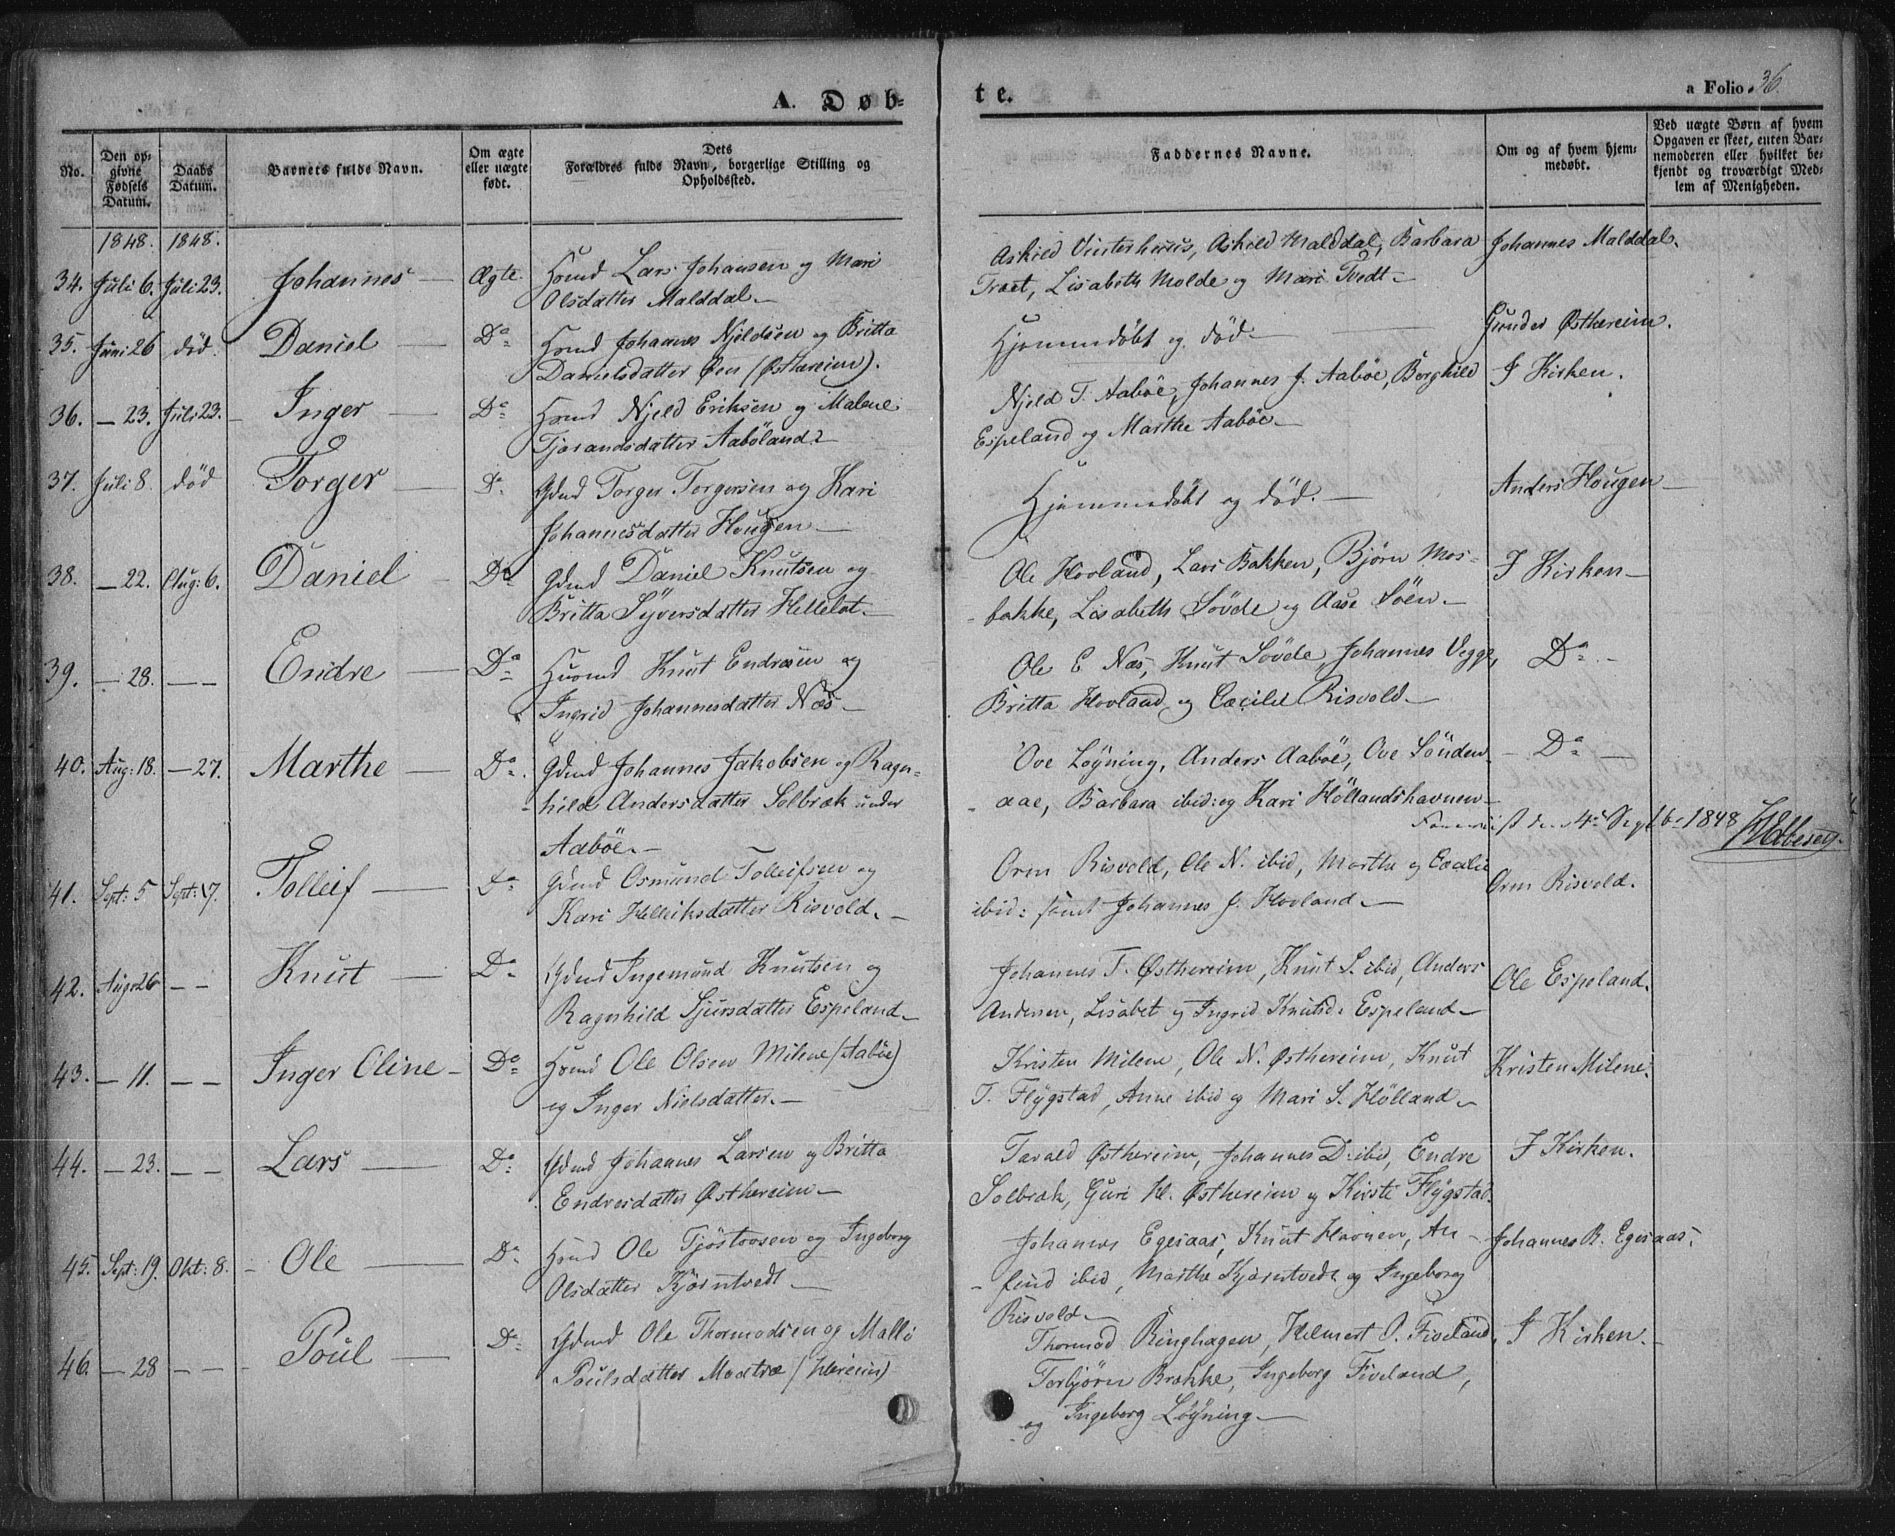 A. Døb-
te.
a Folio 36.
No.
Den op-
givne
Fødsels
Datum.
Daabs
Datum.
Barnets fulde Navn.
Om ægte
eller uægte
født.
Dets
Forældres fulde Navn, borgerlige Stilling og
Opholdssted.
Faddernes Navne.
Om og af hvem hjem-
medøbt.
Ved uægte Børn af hvem
Opgaven er skeet, enten Bar-
nemoderen eller hvilket be-
kjendt og troværdigt Med-
lem af Menigheden.
1848. 1848.
34. Juli 6. Juli 23. Johannes — Ægte. Hmd Lars Johansen og Mari
Olsdatter Malddal.—
Askild Vinterhuus, Askild Malddal, Barbara
Traet, Lisabeth Molde og Mari Tvedt—
Johannes Malddal.
35. Juni 26 død. Daniel — Do Hmd Johannes Njeldsen og Britta
Danielsdatter Øen (Østhereim).
Hjemmedøbt og død.—
Gunder Østhereim.
36. — 23. Juli 23. Inger — Do Hmd Njeld Eriksen og Malene
Tjorandsdatter Aabøland
Njeld T. Aabøe, Johannes J. Aabøe, Borghild
Espeland og Marthe Aabøe.—
I Kirken.
37. Juli 8. død Torger — Do Gdmd Torger Torgersen og Kari
Johannesdatter Hougen—
Hjemmedøbt og død.—
Anders Hougen—
38. — 22. Aug: 6. Daniel — Do Gdmd Daniel Knutsen og
Britta Syversdatter Helleløt.—
Ole Hovland, Lars Bakken, Bjørn Mos-
bakke, Lisabeth Søvde og Aase Søen—
I Kirken—
39. — 28. — — Endre — Do Huusmd Knut Endresen og
Ingrid Johannesdatter Næs—
Ole E. Næs, Knut Søvde, Johannes Vegge,
Britta Hovland og Cæcilie Risvold.—
Do —
40. Aug: 18. — 27. Marthe — Do Gdmd Johannes Jakobsen og Ragn-
hilde Andersdatter Solbræk under
Aabøe.—
Ove Løyning, Anders Aabøe, Ove Sønden-
aae, Barbara ibid: og Kari Høllandshavnen—
— Do —
den 4de Septb 1848
41. Sept: 5 Sept: 17. Tolleif — Do Gdmd Osmund Tolleifsen og
Kari Helleiksdatter Risvold.—
Orm Risvold, Ole N. ibid, Martha og Cecilie
ibid: samt Johannes J. Hovland.—
Orm Risvold.
42. Aug: 26 — — Knut — Do Gdmd Ingemund Knutsen og
Ragnhild Sjursdatter Espeland—
Johannes T. Østhereim, Knut S. ibid, Anders
Andersen, Lisabet og Ingrid Knutsd: Espeland—
Ole Espeland.
43. — 11. — — Inger Oline — Do Hmd Ole Olsen Milene (Aabøe)
og Inger Nielsdatter.—
Kristen Milene, Ole N. Østhereim, Knut
T. Flygstad, Anne ibid og Mari S. Hølland—
Kristen Milene.
44. — 23. — — Lars — Do Gdmd Johannes Larsen og Britta
Endresdatter Østhereim—
Tarald Østhereim, Johannes D: ibid, Endre
Solbræk, Guri H. Østhereim og Kirste Flygstad.
I Kirken.
45. Sept: 19. Okt: 8. Ole — Do Hmd Ole Tjøstovsen og Ingeborg
Olsdatter Kjørntvedt—
Johannes Egesaas, Knut Havnen, An-
find ibid, Marthe Kjørntvedt og Ingeborg
Risvold—
Johannes B. Egesaas.
46. — 28 — — Poul — Do Gdmd Ole Thormodsen og Malli
Poulsdatter Mæstræ (Hereim)
Thormod Ringhagen, Helmert O. Fiveland,
Torbjørn Brække, Ingeborg Fiveland,
og Ingeborg Løyning—
I Kirken.—